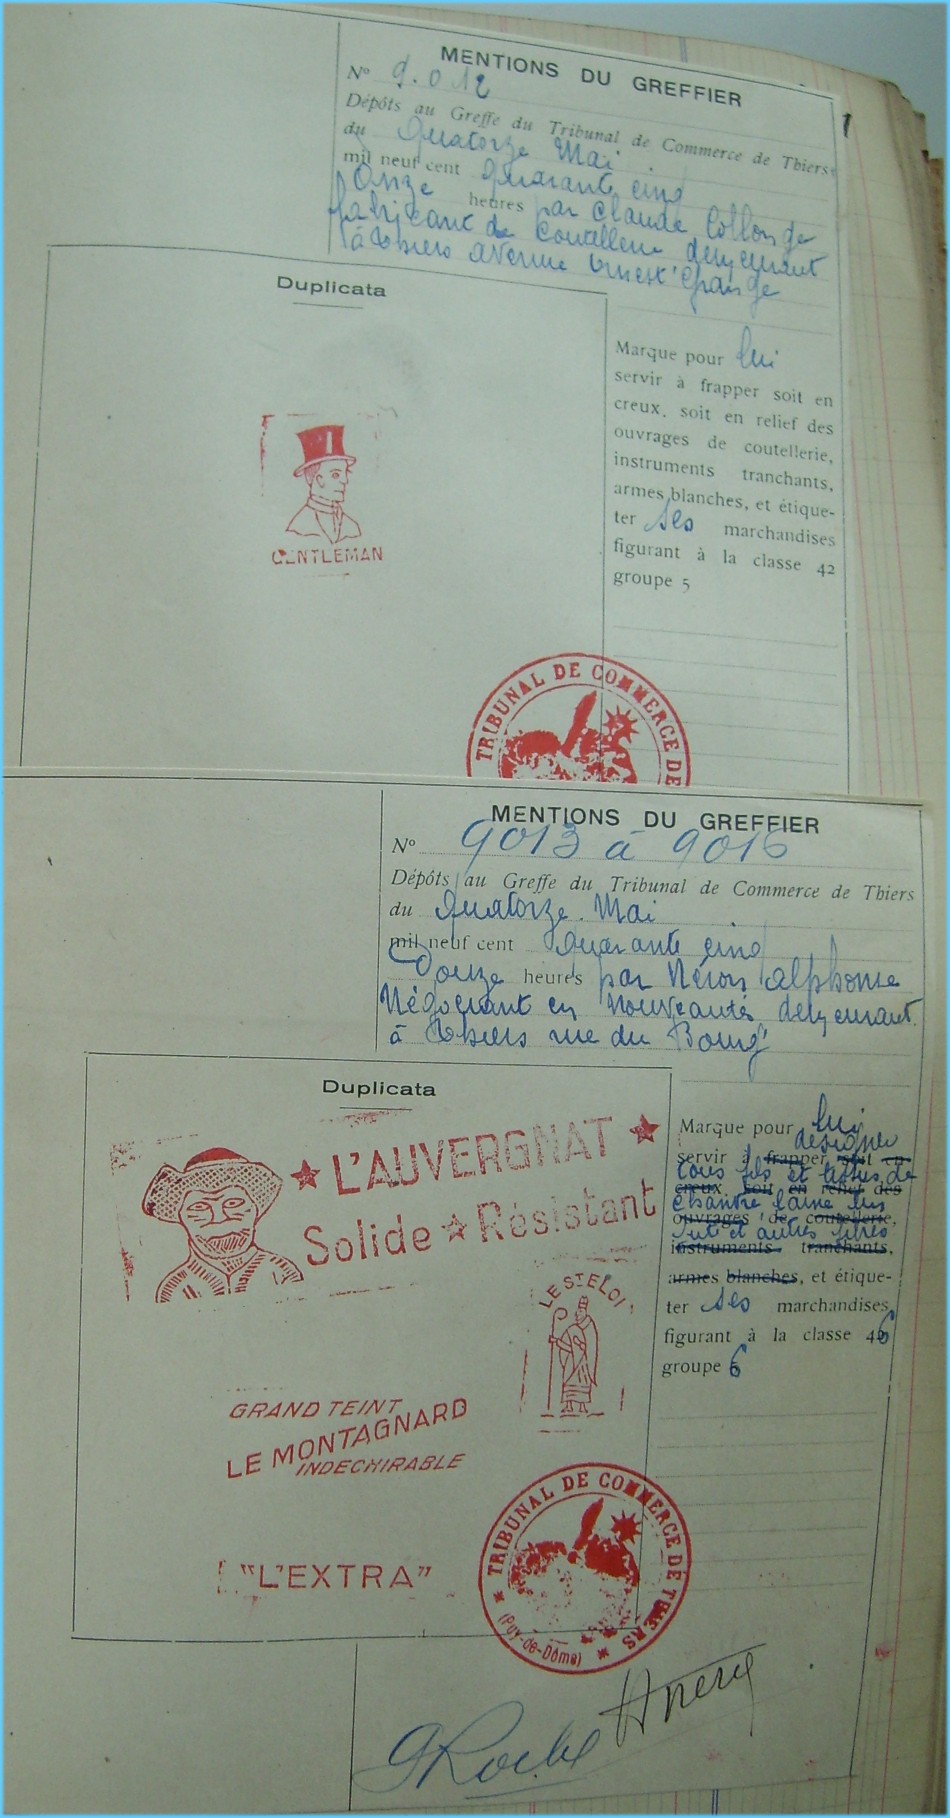 MENTIONS DU GREFFIER
N° 9.012
Dépôts au Greffe du Tribunal de Commerce de Thiers
du Quatorze Mai
mil neuf cent quarante cinq
Onze heures par Claude Collonge
fabricant de coutellerie demeurant
à Thiers avenue Ernest
Duplicata
GENTLEMAN
Marque pour lui
servir à frapper soit en
creux, soit en relief des
ouvrages de coutellerie,
instruments tranchants,
armes blanches, et étique-
ter ses marchandises
figurant à la classe 42
groupe 5
TRIBUNAL DE COMMERCE DE
MENTIONS DU GREFFIER
N° 9013 à 9016
Dépôts au Greffe du Tribunal de Commerce de Thiers
du Quatorze Mai
mil neuf cent quarante cinq
Douze heures par Néron alphonse
Négociant en nouveautés demeurant
à Thiers rue du Bourg
Duplicata
L'AUVERGNAT
Solide Résistant
LE ST ELOI
GRAND TEINT
LE MONTAGNARD
INDECHIRABLE
"L'EXTRA"
Marque pour lui
designer
servir à frapper soit en
tous fils et tissus de
creux soit en relief des
chanvre laine lin
ouvrages de coutellerie,
jute et autres fibres
instruments tranchants,
armes blanches, et étique-
ter ses marchandises
figurant à la classe 46
groupe 6
TRIBUNAL DE COMMERCE DE THIERS
(Puy-de-Dôme)